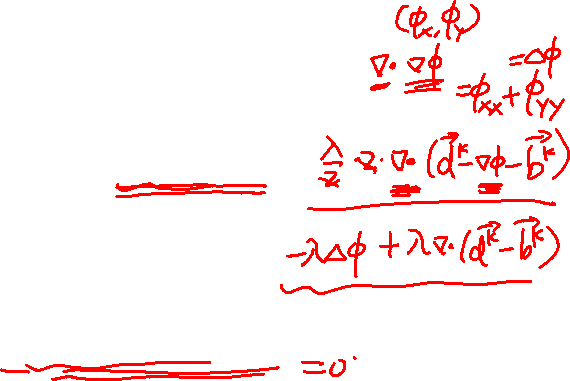 (ϕx, ϕy)
∇· ∇ϕ = Δϕ
= ϕxx + ϕyy
λ/2 · 2 · ∇· (d⃗ᵏ - ∇ϕ - b⃗ᵏ)
-λΔϕ + λ∇·(d⃗ᵏ - b⃗ᵏ)
= 0